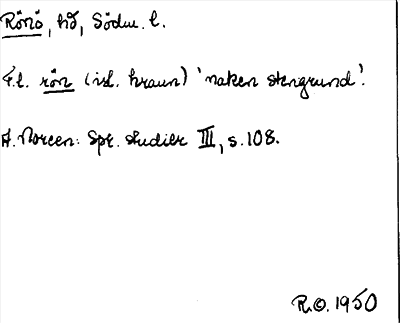 Rönö, hd, Södm. l.
F.l. rön (isl. hraun) 'naken stengrund'.
A. Noreen: Spr. studier III, s. 108.
R.O. 1950